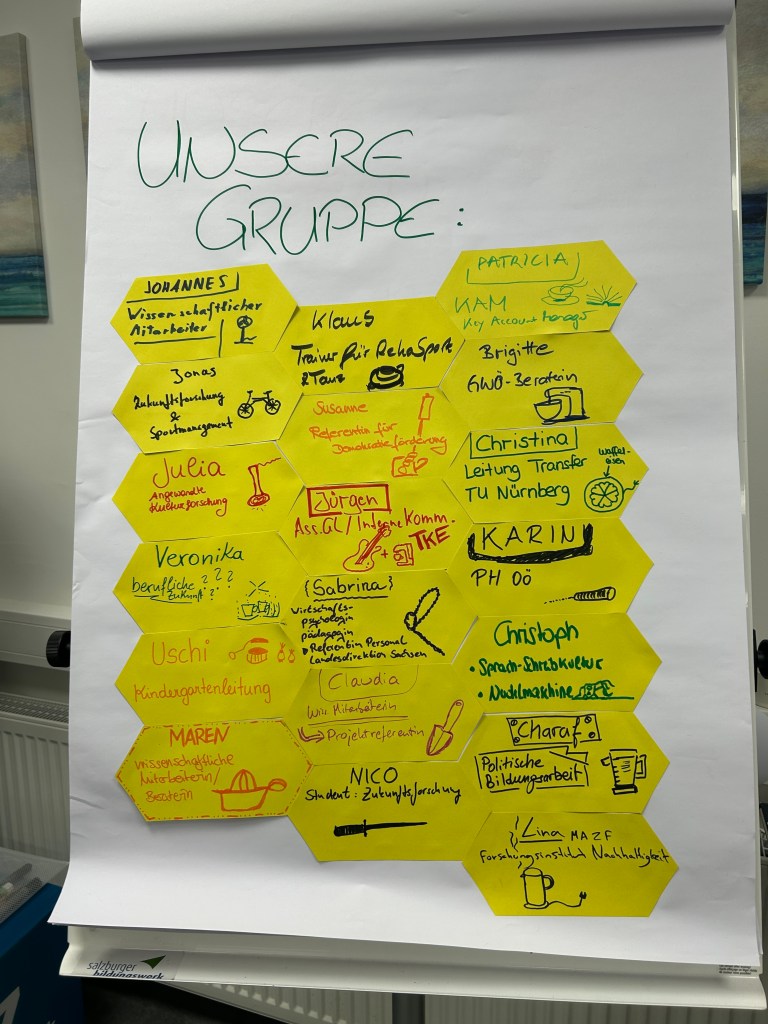 UNSERE
GRUPPE:
JOHANNES
Wissenschaftlicher
Mitarbeiter
Jonas
Zukunftsforschung
&
Sportmanagement
Julia
Angewandte
Kulturforschung
Veronika
berufliche ? ? ?
Zukunft?
Uschi
Kindergartenleitung
MAREN
wissenschaftliche
Mitarbeiterin/
Beraterin
Klaus
Trainer für RehaSport
& Tanz
Susanne
Referentin für
Demokratieförderung
Jürgen
Ass.GL / Interne Komm.
+ TKE
{Sabrina}
Wirtschafts-
psychologin
pädagogin
Referentin Personal
Landesdirektion Sachsen
Claudia
Wiss. Mitarbeiterin
Projektreferentin
NICO
Student: Zukunftsforschung
PATRICIA
KAM
Key Account Manager
Brigitte
GWÖ-Beraterin
Christina
Waffel-
eisen
Leitung Transfer
TU Nürnberg
KARIN
PH OÖ
Christoph
• Sprach-Schreibkultur
• Nudelmaschine
Charaf
Politische
Bildungsarbeit
Lina MAZF
Forschungsinstitut Nachhaltigkeit
salzburger
bildungswerk